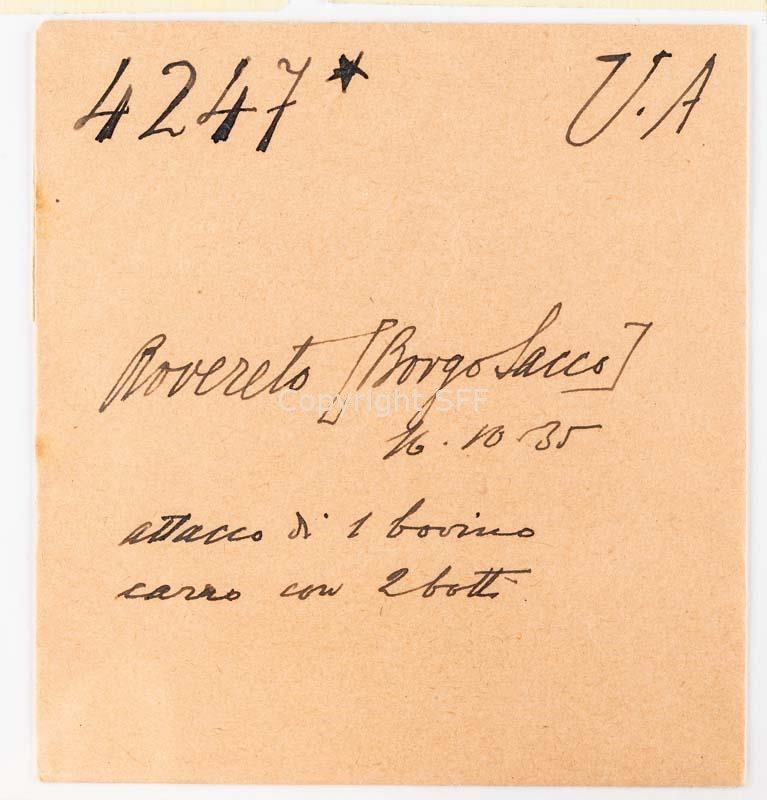 4247* U.A
Rovereto [Borgo Sacco]
Copyright SFF
16.10.35
attacco di 1 bovino
carro con 2 botti